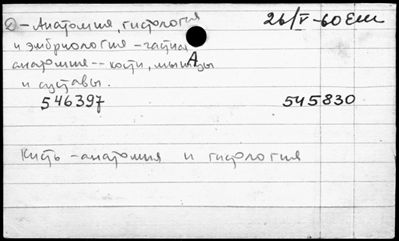 Д - Анатомия, гистология 26/V-60 Еш
и эмбриология - частная
анатомия -- кости, мышцы
А
и суставы.
546397 545830
Кисть - анатомия и гистология